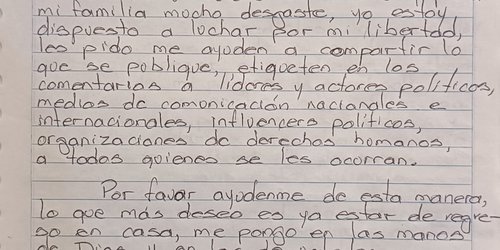 mi familia mucho desgaste, yo estoy
dispuesto a luchar por mi libertad,
les pido me ayuden a compartir lo
que se publique, etiqueten en los
comentarios a líderes y actores políticos,
medios de comunicación nacionales e
internacionales, influencers políticos,
organizaciones de derechos humanos,
a todos quienes se les ocurran.
Por favor ayudenme de esta manera,
lo que más deseo es ya estar de regre-
so en casa, me pongo en las manos
de Dios y en las de